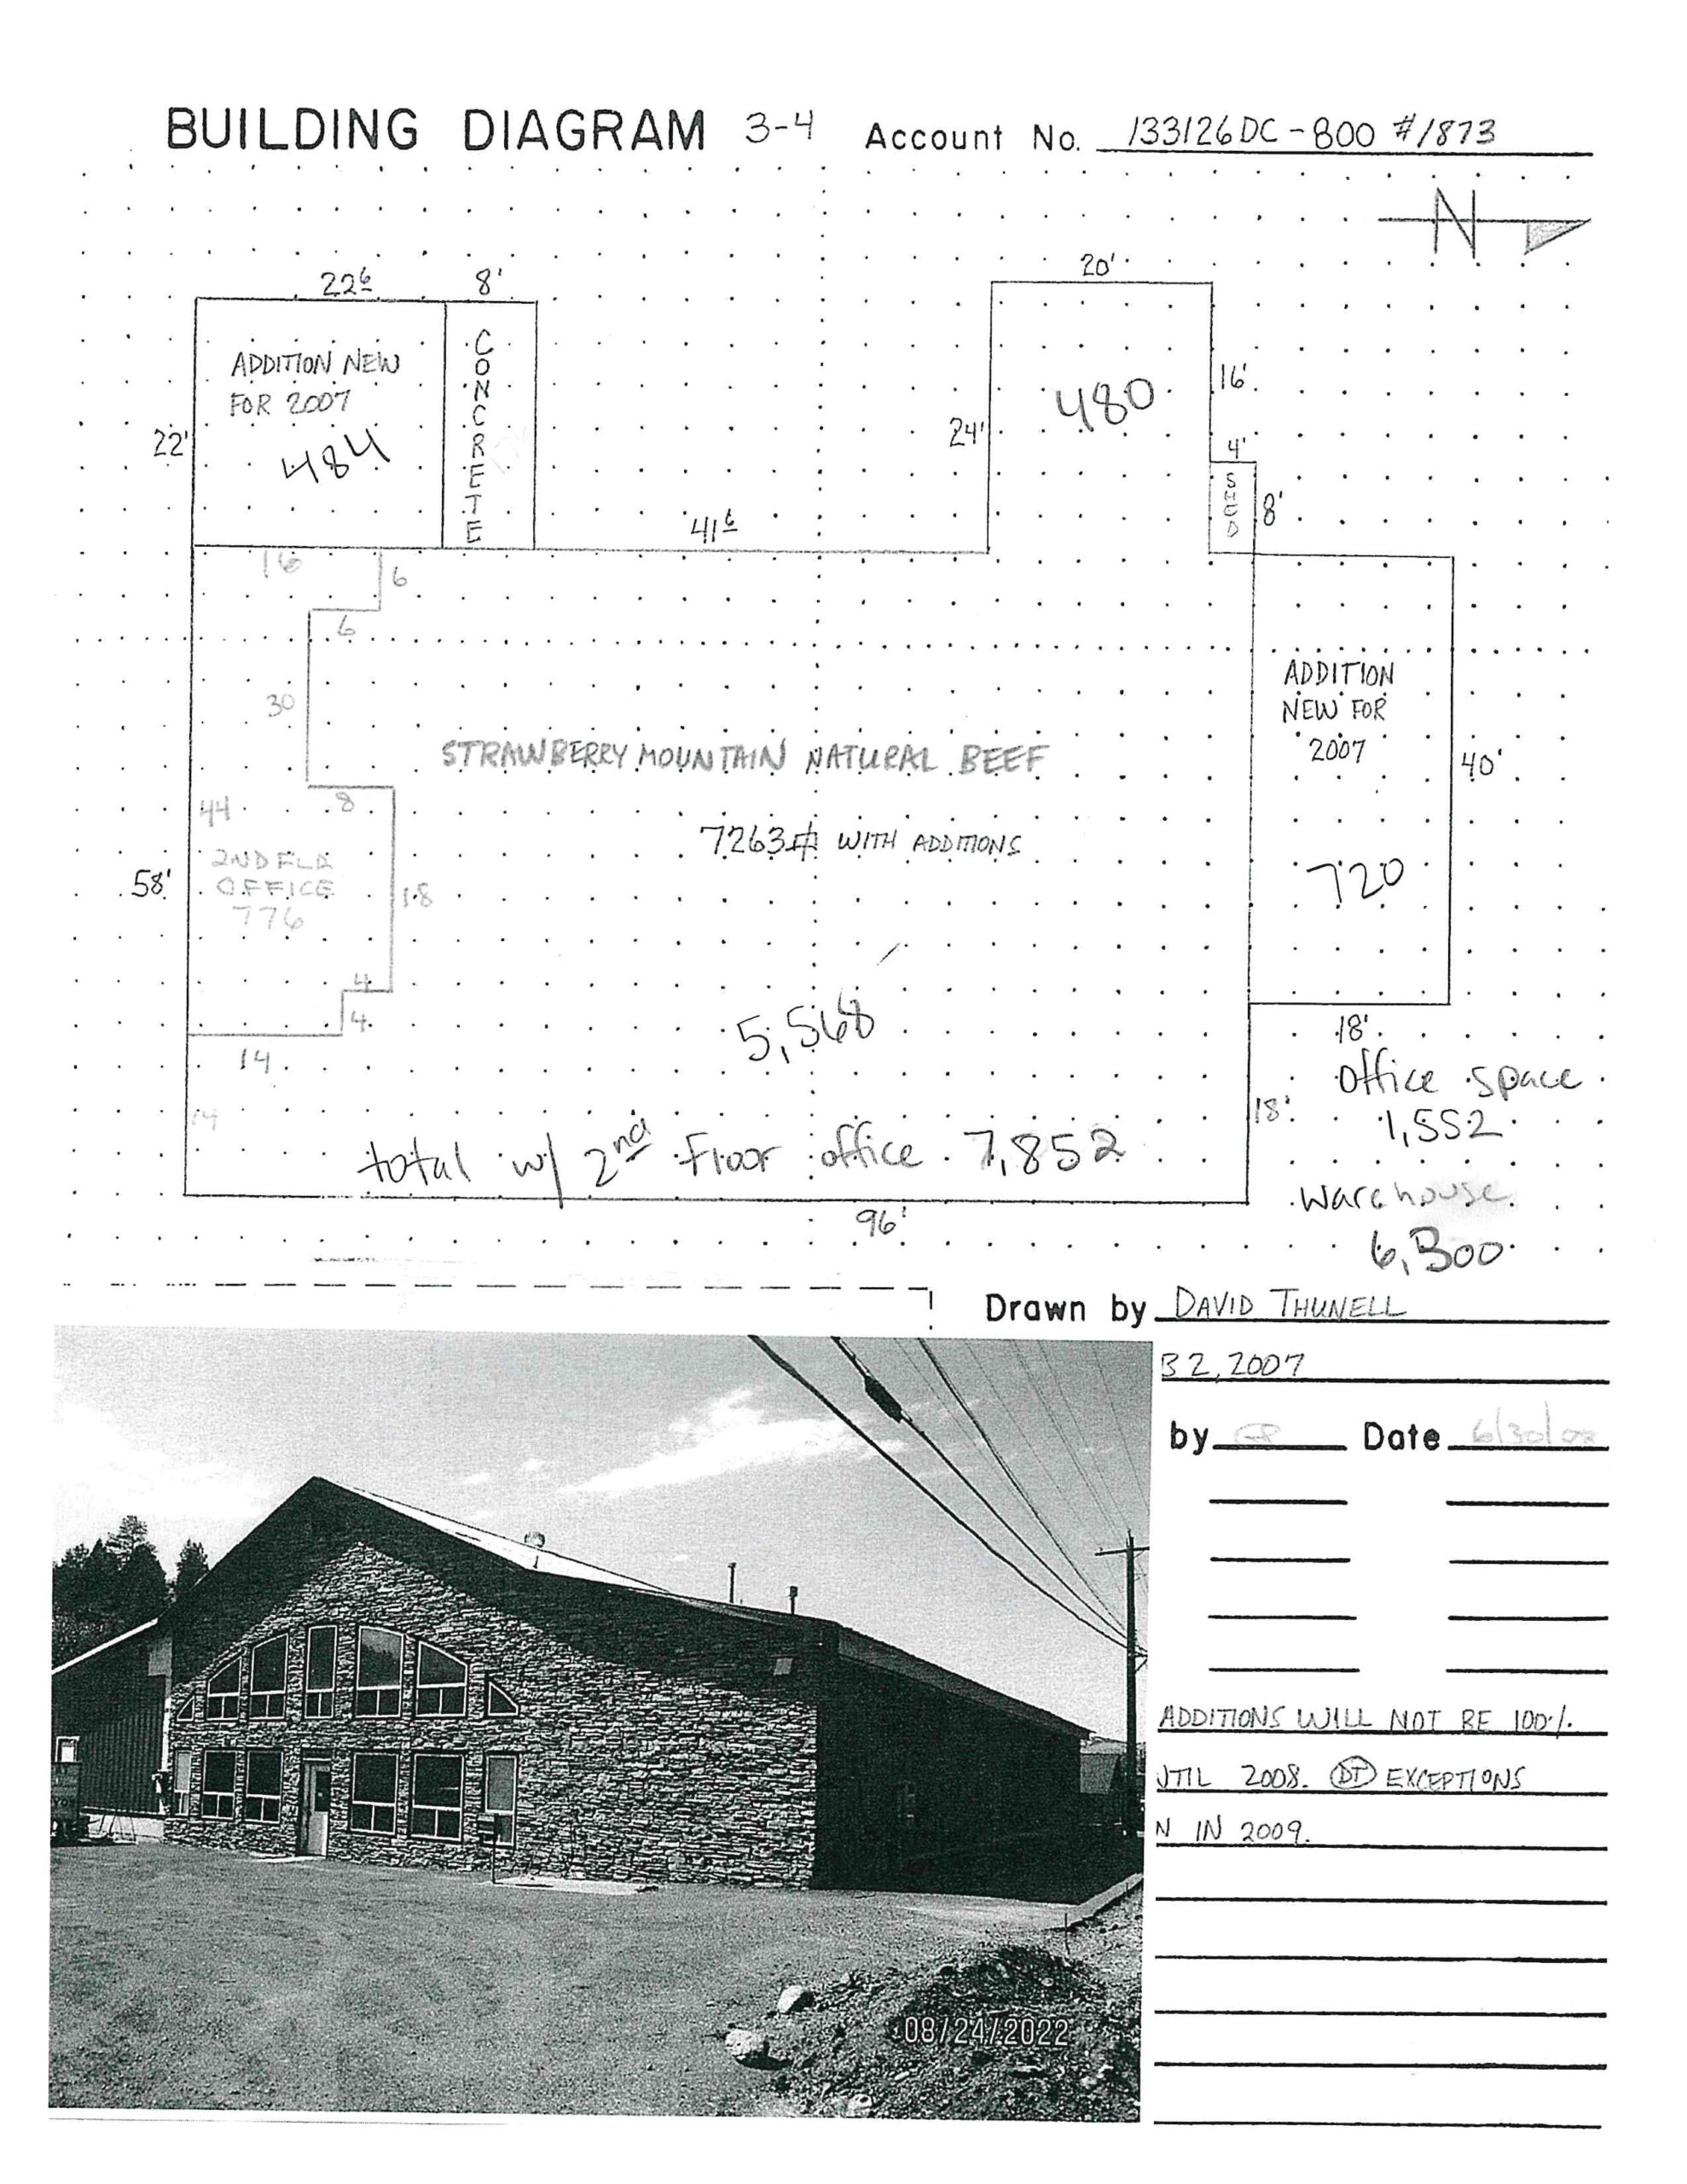 BUILDING DIAGRAM 3-4 Account No. 133126DC-800 #1873
N
22⁶ 8' 20'
ADDITION NEW
FOR 2007
484
CONCRETE
22'
480
16'
24'
4'
SHED
8'
41⁶
16
6
6
30
STRAWBERRY MOUNTAIN NATURAL BEEF
7263# WITH ADDITIONS
ADDITION
NEW FOR
2007
40'
720
44
8
2ND FLR
OFFICE
776
58'
18
4
4
14
14
5,568
18'
18'
total w/ 2nd Floor office 7,852
96'
office space
1,552
warehouse
6,300
Drawn by DAVID THUNELL
B 2, 2007
by Date 6/30/08
ADDITIONS WILL NOT BE 100%
UTIL 2008. DT EXCEPTIONS
N IN 2009.
08/24/2022